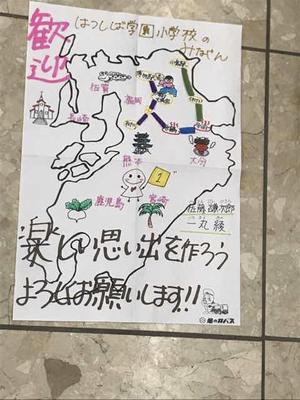 歓迎
はつしば学園小学校の
みなさん
佐賀
福岡
長崎
大分
熊本
鹿児島
宮崎
佐藤謙次郎
一丸 綾
楽しい思い出を作ろう
よろしくお願いします!!
亀の井バス